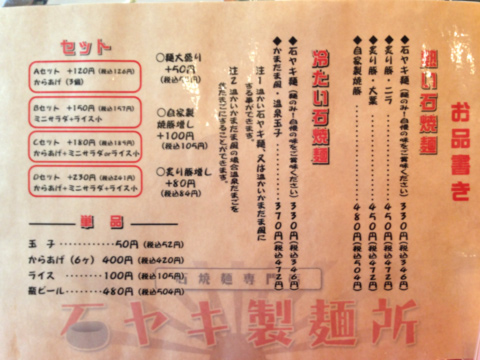 お品書き
温い石焼麺
◆石ヤキ麺(麺のみ!自慢の味をご賞味ください)330円(税込346円)
◆炙り豚・ニラ 450円(税込472円)
◆炙り豚・大葉 450円(税込472円)
◆自家製焼豚 480円(税込504円)
冷たい石焼麺
◆石ヤキ麺(麺のみ!自慢の味をご賞味ください)330円(税込346円)
◆かまだま風・温泉玉子 370円(税込472円)
注1 温かい石ヤキ麺、又は温かいかまだま風に
する事ができます。
注2 温かいかまだま風の場合温泉たまごを
生たまごにすることができます。
セット
Aセット +120円(税込126円)
からあげ(3個)
Bセット +150円(税込157円)
ミニサラダ+ライス小
Cセット +180円(税込189円)
からあげ+ミニサラダorライス小
Dセット +230円(税込241円)
からあげ+ミニサラダ+ライス小
○麺大盛り
+50円
(税込52円)
○自家製
焼豚増し
+100円
(税込105円)
○炙り豚増し
+80円
(税込84円)
単品
玉子 ‥‥‥‥ 50円(税込52円)
からあげ(6ヶ) 400円(税込420円)
ライス ‥‥‥‥ 100円(税込105円)
瓶ビール ‥‥‥ 480円(税込504円)
石焼麺専門
石ヤキ製麺所